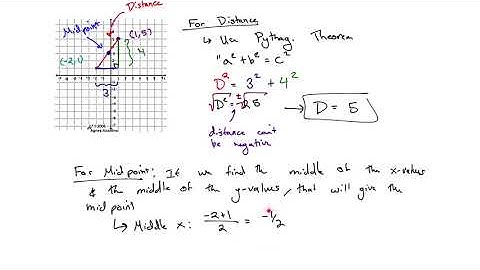 Distance
Midpoint
(1,5)
4
(-2,1)
3
For Distance
↳ Use Pythag. Theorem
"a² + b² = c²
D² = 3² + 4²
√D² = ±√25
→ D = 5
distance can't
be negative
For Midpoint: If we find the middle of the x-values
& the middle of the y-values, that will give the
midpoint
↳ Middle x: -2+1/2 = -1/2